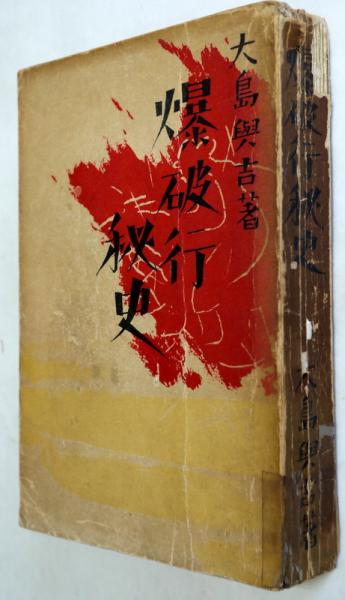 大島與吉著
爆破行
秘史
爆破行秘史
大島與吉著